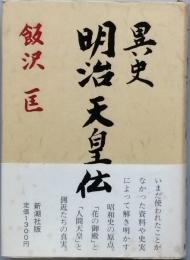 異史
明治天皇伝
飯沢 匡
いまだ使われたことが
なかった資料や史実
によって解き明かす
昭和史の原点。
「花の御殿」と
「人間天皇」と
側近たちの真実。
新潮社版
定価1300円